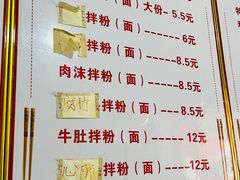 （面）大份--5.5元
拌粉（面）-----6元
拌粉（面）-----8.5元
肉沫拌粉（面）---8.5元
腐竹拌粉（面）---8.5元
牛肚拌粉（面）---12元
心 拌粉（面）---12元